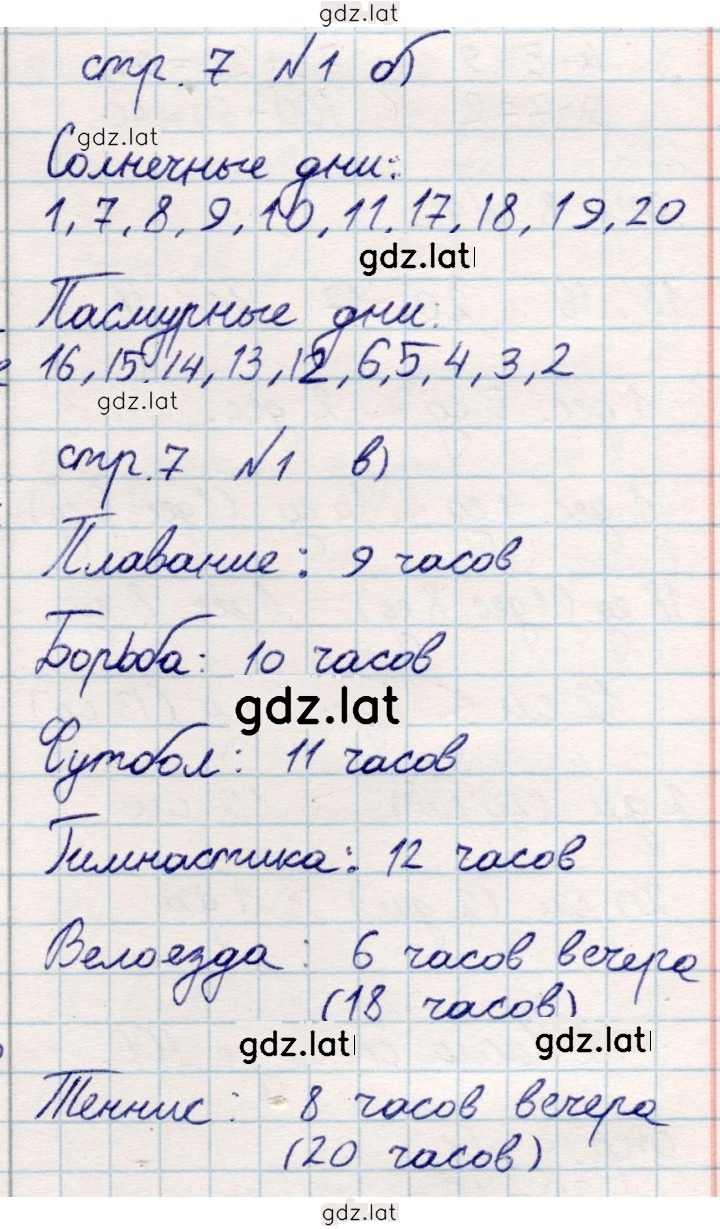 gdz.lat
стр. 7 №1 б)
gdz.lat
Солнечные дни:
1, 7, 8, 9, 10, 11, 17, 18, 19, 20
gdz.lat
Пасмурные дни:
16, 15, 14, 13, 12, 6, 5, 4, 3, 2
gdz.lat
стр. 7 №1 в)
Плавание: 9 часов
Борьба: 10 часов
gdz.lat
Футбол: 11 часов
Гимнастика: 12 часов
Велоезда: 6 часов вечера
(18 часов)
gdz.lat gdz.lat
Теннис: 8 часов вечера
(20 часов)
gdz.lat